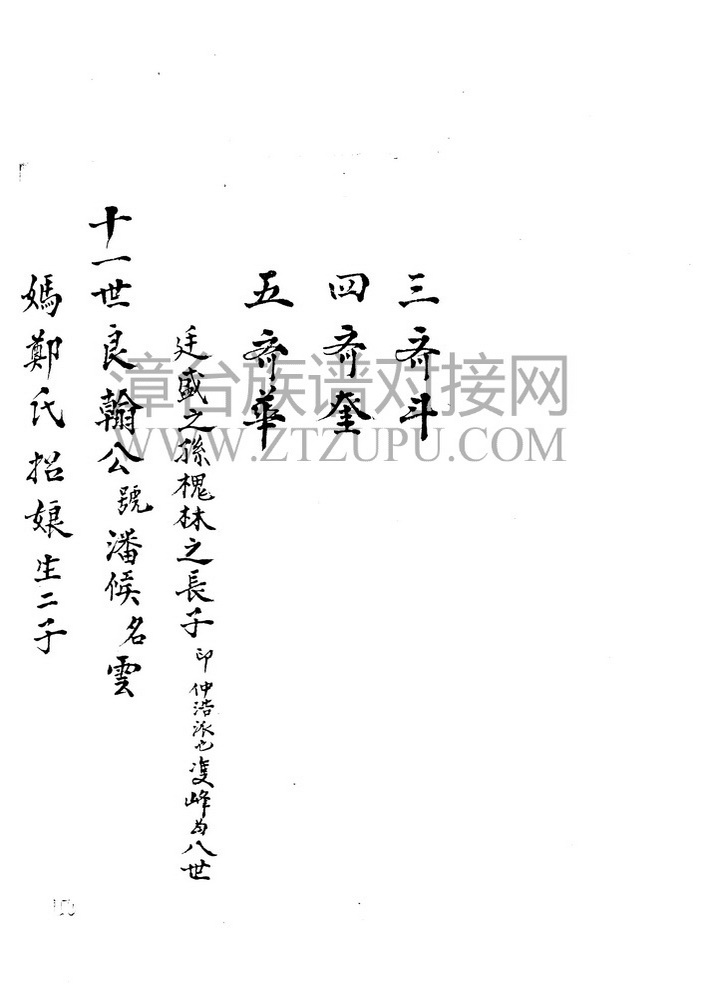 三斎斗
四斎奎
五斎華
廷盛之孫槐林之長子印仲浩派也雙峰為八世
十一世良翰公號潘侯名雲
媽鄭氏招娘生二子
漳台族谱对接网
WWW.ZTZUPU.COM